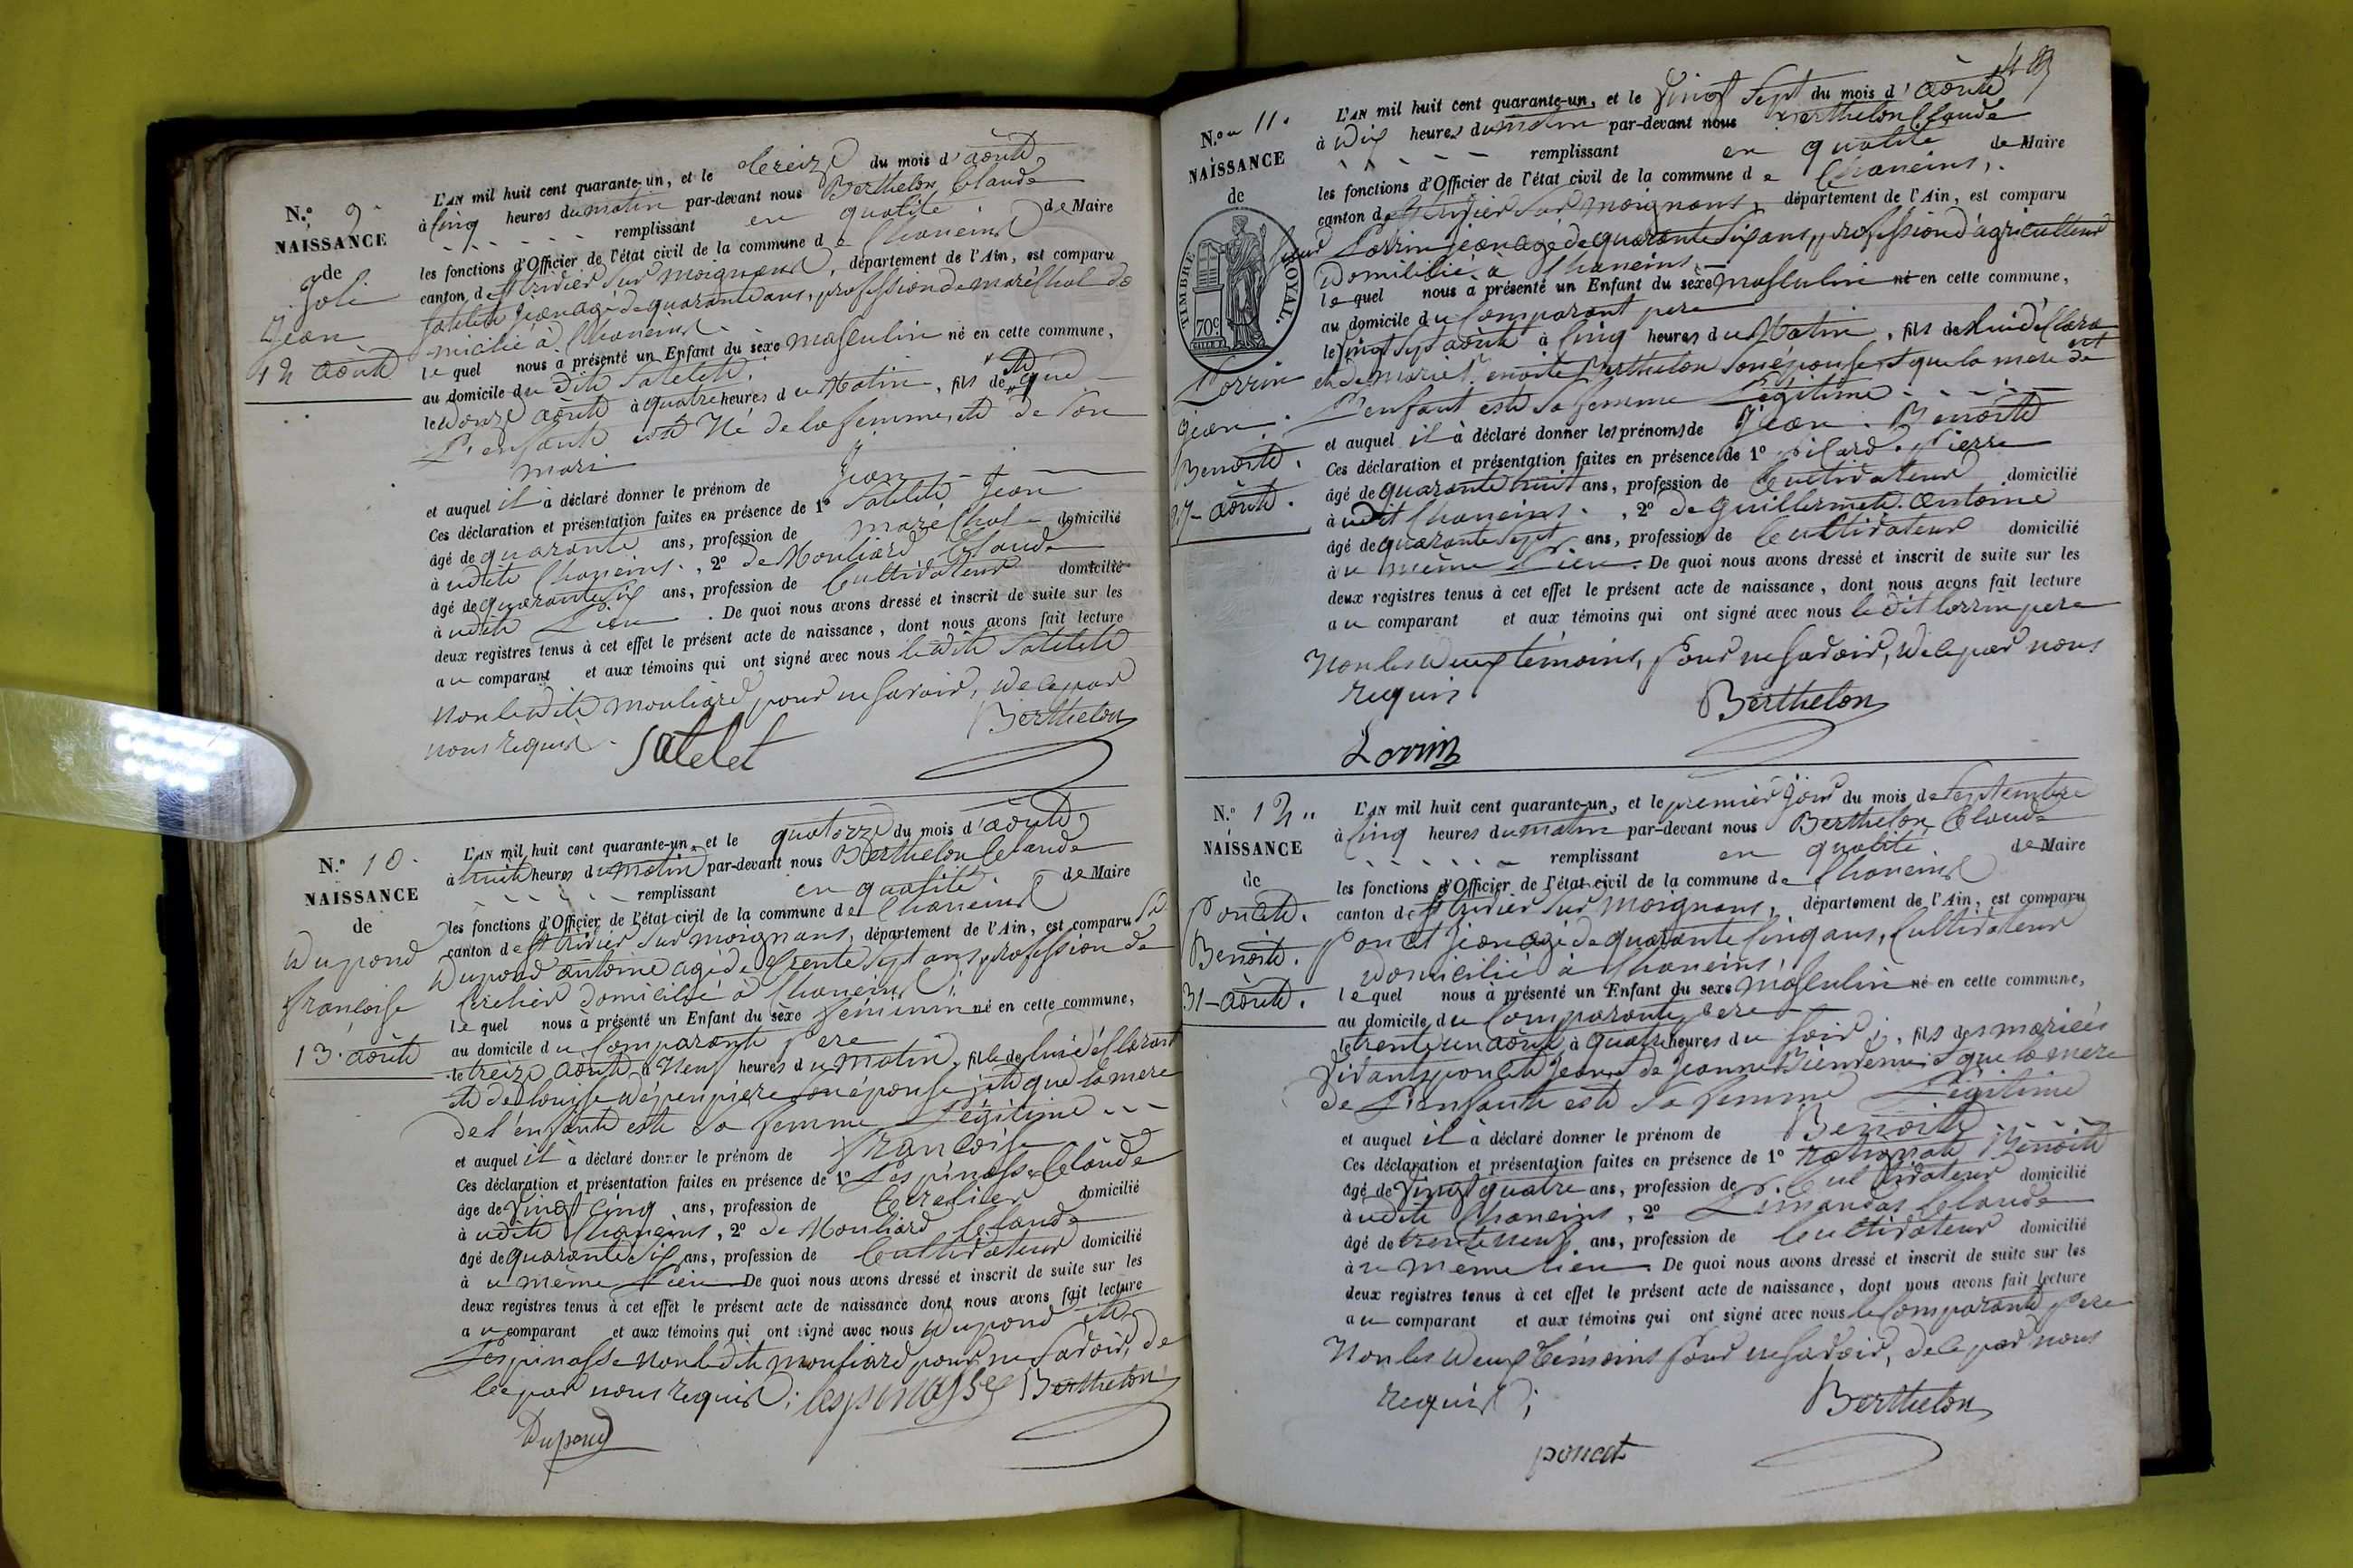 N.º 9.
NAISSANCE
de
Joli
Jean
12 aoûte
L'AN mil huit cent quarante-un, et le treize du mois d'aoûte
à cinq heures du matin par-devant nous Berthelon Claude
remplissant en qualité de Maire
les fonctions d'Officier de l'état civil de la commune de Chaneins
canton de St trivier sur moignans, département de l'Ain, est comparu
Satelete Jean agé de quarante ans, profession de maréchal do
micilié à Chaneins
lequel nous a présenté un Enfant du sexe masculin né en cette commune,
au domicile du dite Satelete
le douze aoûte à quatre heures du Matin, fils de que
L'enfante est Né de la femme, et de son
mari
et auquel il a déclaré donner le prénom de Jean
Ces déclaration et présentation faites en présence de 1º Satelete Jean
âgé de quarante ans, profession de maréchal domicilié
à udite Chaneins, 2º de Mouliard Claude
âgé de quarante six ans, profession de Cultivateur domicilié
à udite Lieu. De quoi nous avons dressé et inscrit de suite sur les
deux registres tenus à cet effet le présent acte de naissance, dont nous avons fait lecture
au comparant et aux témoins qui ont signé avec nous le dite Satelete
non le dite mouliard pour ne savoir, de ce par
nous requis. Satelet Berthelon
N.º 10.
NAISSANCE
de
Dupond
françoise
13. aoûte
L'AN mil huit cent quarante-un, et le quatorze du mois d'aoûte
à huite heures du matin par-devant nous Berthelon Claude
remplissant en qualité de Maire
les fonctions d'Officier de l'état civil de la commune de Chaneins
canton de St trivier sur moignans, département de l'Ain, est comparu
Dupond antoine agé de trente sept ans, profession de
Crelier domicilié à Chaneins
lequel nous à présenté un Enfant du sèxe féminin né en cette commune,
au domicile du Comparante Pere
le treize aoûte à Neuf heures du matin, fille de lui déclarant
et de louise dépenpiere son épouse, et que la mere
de l'enfante este sa femme Légitime
et auquel il à déclaré donner le prénom de françoise
Ces déclaration et présentation faites en présence de 1º Lespinasse Claude
âge de Vingt cinq ans, profession de Crelier domicilié
à udite Chaneins, 2º de Mouliard Claude
âgé de quarante six ans, profession de Cultivateur domicilié
à u même Lieu De quoi nous avons dressé et inscrit de suite sur les
deux registres tenus à cet effet le présent acte de naissance dont nous avons fait lecture
au comparant et aux témoins qui ont signé avec nous Dupond et
Lespinasse non le dite mouliard pour ne savoir, de
ce par nous requis; lespinasse Berthelon
Dupond
48
N.º 11.
NAISSANCE
de
TIMBRE ROYAL.
70c
Lorrin
Jean
Benoite.
27 - aoûte.
L'AN mil huit cent quarante-un, et le Vingt Sept du mois d'aoûte
à dix heures du matin par-devant nous Berthelon Claude
remplissant en qualité de Maire
les fonctions d'Officier de l'état civil de la commune de Chaneins,
canton de St trivier sur moignans, département de l'Ain, est comparu
Lorrin jean agé de quarante six ans, profession d'agriculteur
domicilié à Chaneins
lequel nous a présenté un Enfant du sèxe masculin né en cette commune,
au domicile du Comparant pere
le Vingt Sept aoûte à Cinq heures du Matin, fils de lui déclara
et de mariet benoite Berthelon son épouse et que la mere de
L'enfant este sa femme Légitime
et auquel il à déclaré donner les prénoms de Jean. Benoite
Ces déclaration et présentation faites en présence de 1º Pierre
âgé de quarante huit ans, profession de Cultivateur domicilié
à udit Chaneins, 2º de guillermete antoine
âgé de quarante Sept ans, profession de Cultivateur domicilié
à u même Lieu. De quoi nous avons dressé et inscrit de suite sur les
deux registres tenus à cet effet le présent acte de naissance, dont nous avons fait lecture
au comparant et aux témoins qui ont signé avec nous le dit lorrin pere
Non les deux témoins, pour ne savoir, de ce par nous
requis. Berthelon
Lorrin
N.º 12
NAISSANCE
de
Poncete.
Benoite.
31 - aoûte.
L'AN mil huit cent quarante-un, et le premier Jour du mois de Septembre
à cinq heures du matin par-devant nous Berthelon Claude
remplissant en qualité de Maire
les fonctions d'Officier de l'état civil de la commune de Chaneins
canton de St trivier sur moignans, département de l'Ain, est comparu
Poncet Jean agé de quarante cinq ans, Cultivateur
domicilié à Chaneins,
lequel nous à présenté un Enfant du sexe masculin né en cette commune,
au domicile du Comparante pere
le trente un aoûte à Quatre heures du soir, fils des mariées
Vivants poncete Jean et de Jeanne Bienvenue et que la mere
de L'enfante este sa femme Légitime
et auquel il à déclaré donner le prénom de Benoite
Ces déclaration et présentation faites en présence de 1º Benoite
âgé de Vingt quatre ans, profession de Cultivateur domicilié
à udite Chaneins, 2º Limandas Claude
âgé de trente neuf ans, profession de Cultivateur domicilié
à u même lieu. De quoi nous avons dressé et inscrit de suite sur les
deux registres tenus à cet effet le présent acte de naissance, dont nous avons fait lecture
au comparant et aux témoins qui ont signé avec nous le Comparante Pere
Non les deux témoins pour ne savoir, de ce par nous
requis; Berthelon
poncet